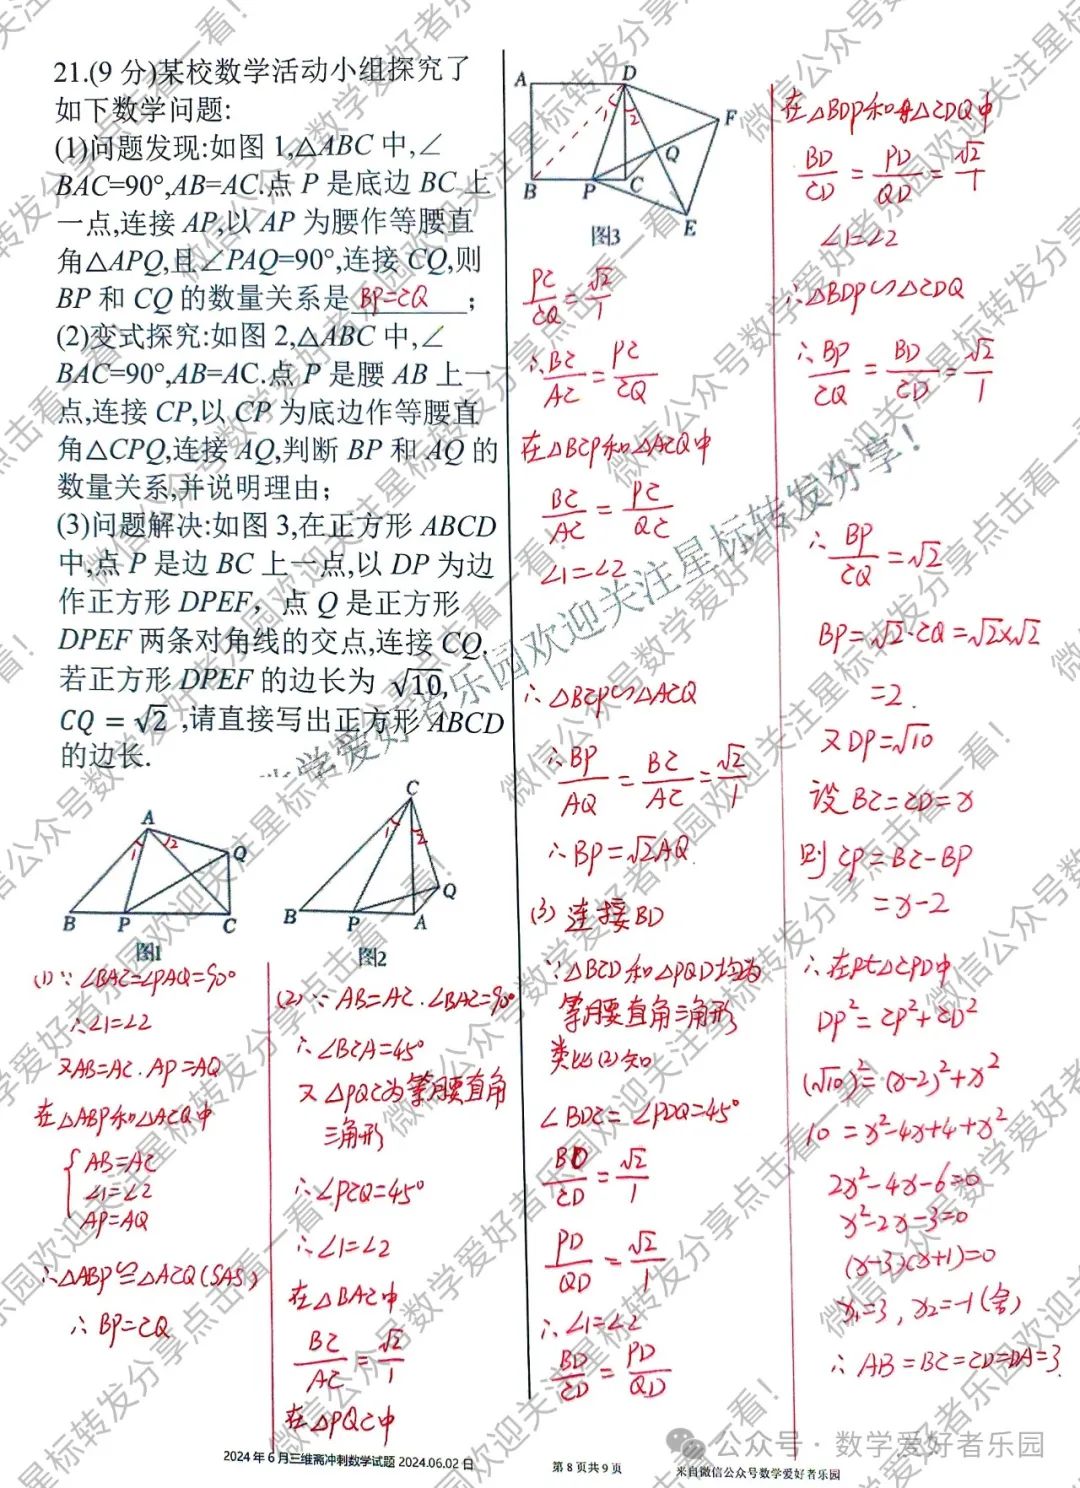 21.(9 分)某校数学活动小组探究了
如下数学问题:
(1)问题发现:如图 1,△ABC 中,∠
BAC=90°,AB=AC.点 P 是底边 BC 上
一点,连接 AP,以 AP 为腰作等腰直
角△APQ,且∠PAQ=90°,连接 CQ,则
BP 和 CQ 的数量关系是 BP=CQ ;
(2)变式探究:如图 2,△ABC 中,∠
BAC=90°,AB=AC.点 P 是腰 AB 上一
点,连接 CP,以 CP 为底边作等腰直
角△CPQ,连接 AQ,判断 BP 和 AQ 的
数量关系,并说明理由;
(3)问题解决:如图 3,在正方形 ABCD
中,点 P 是边 BC 上一点,以 DP 为边
作正方形 DPEF，点 Q 是正方形
DPEF 两条对角线的交点,连接 CQ.
若正方形 DPEF 的边长为 √10,
CQ = √2 ,请直接写出正方形 ABCD
的边长.
A
1
2
Q
B
P
C
图1
C
1
2
Q
B
P
A
图2
(1) ∵ ∠BAC=∠PAQ=90°
∴∠1=∠2
又AB=AC. AP=AQ
在△ABP和△ACQ中
{ AB=AC
∠1=∠2
AP=AQ
∴△ABP≌△ACQ(SAS)
∴ BP=CQ
(2) ∵ AB=AC. ∠BAC=90°
∴ ∠BCA=45°
又 △PQC为等腰直角
三角形
∴∠PCQ=45°
∴∠1=∠2
在△BAC中
BC/AC = √2/1
在△PQC中
A
D
1
2
F
Q
B
P
C
E
图3
PC/CQ = √2/1
∴ BC/AC = PC/CQ
在△BCP和△ACQ中
BC/AC = PC/QC
∠1=∠2
∴ △BCP∽△ACQ
∴ BP/AQ = BC/AC = √2/1
∴ BP=√2AQ.
(3) 连接BD
∵△BCD和△PQD均为
等腰直角三角形
类比(2)知
∠BDC=∠PDQ=45°
BD/CD = √2/1
PD/QD = √2/1
∴∠1=∠2
BD/CD = PD/QD
在△BDP和△CDQ中
BD/CD = PD/QD = √2/1
∠1=∠2
∴△BDP∽△CDQ
∴ BP/CQ = BD/CD = √2/1
∴ BP/CQ = √2
BP=√2·CQ=√2×√2
=2.
又DP=√10
设BC=CD=x
则 CP=BC-BP
=x-2
∴在Rt△CPD中
DP²=CP²+CD²
(√10)²=(x-2)²+x²
10 = x²-4x+4+x²
2x²-4x-6=0
x²-2x-3=0
(x-3)(x+1)=0
x₁=3, x₂=-1(舍)
∴ AB=BC=CD=DA=3.
公众号 · 数学爱好者乐园
2024 年 6 月三维斋冲刺数学试题 2024.06.02 日
第 8 页共 9 页
来自微信公众号数学爱好者乐园
微信公众号数学爱好者乐园欢迎关注星标转发分享点击看一看！